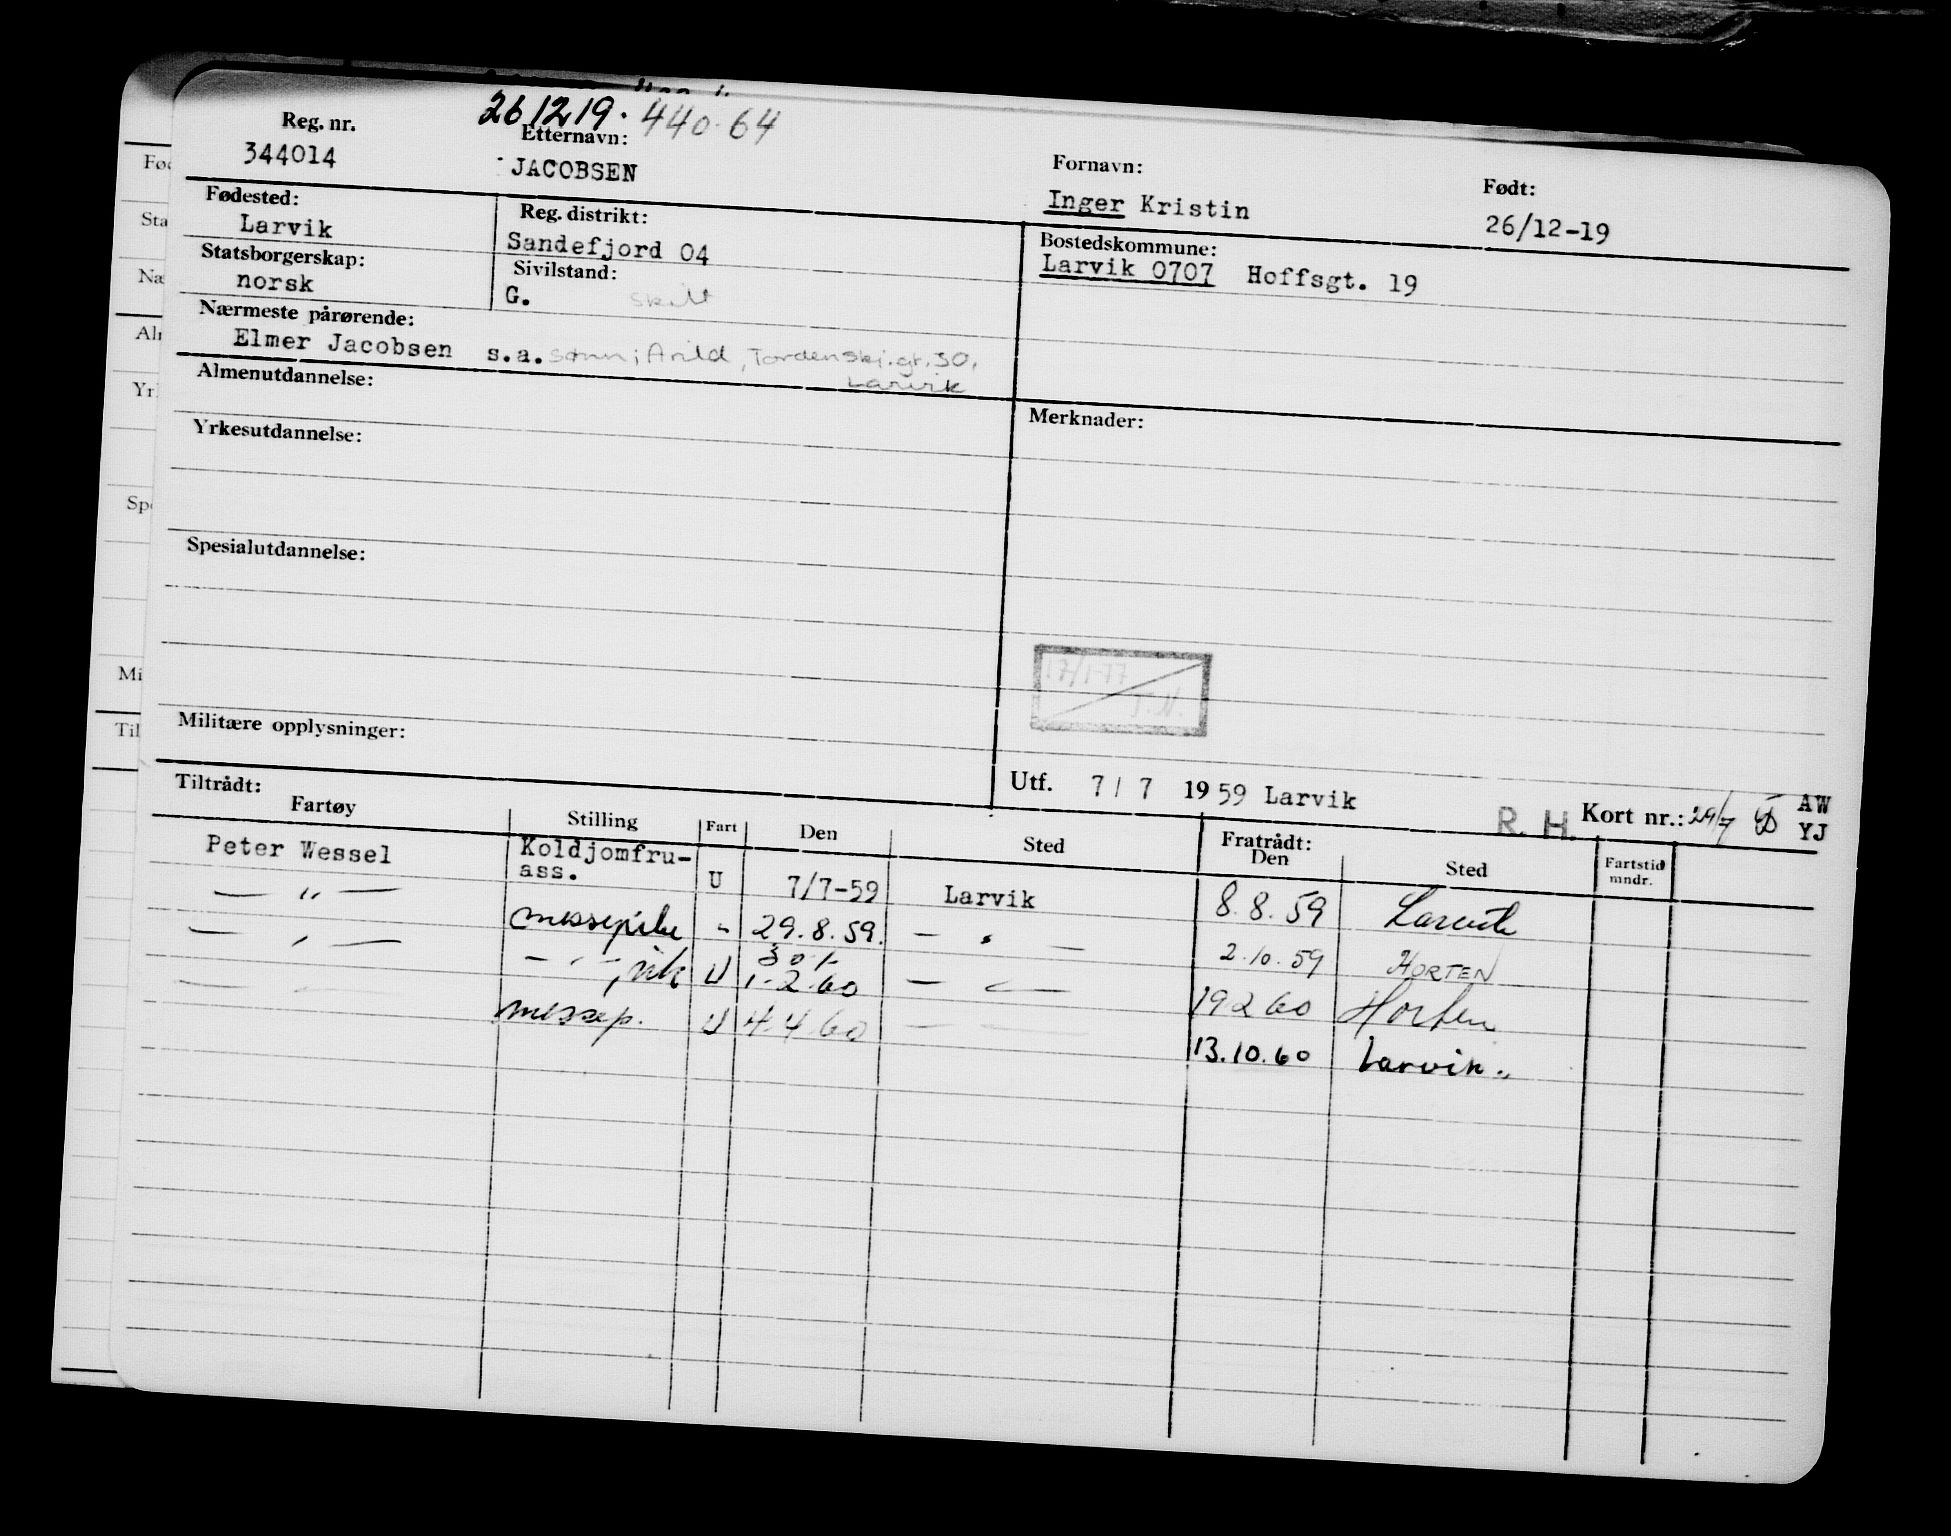 26 12 19. 440.64
Reg. nr. Etternavn: Fornavn: Født:
344014 JACOBSEN Inger Kristin 26/12-19
Fødested: Reg. distrikt: Bostedskommune:
Larvik Sandefjord 04 Larvik 0707 Hoffsgt. 19
Statsborgerskap: Sivilstand:
norsk G. skilt
Nærmeste pårørende:
Elmer Jacobsen s.a. sønn; Arild, Tordenskj.gt. 30,
Larvik
Almenutdannelse: Merknader:
Yrkesutdannelse:
Spesialutdannelse:
17/1-77
T.N.
Militære opplysninger:
Utf. 7/7 1959 Larvik R. H. Kort nr.: 29/7 AW
YJ
Tiltrådt: Fratrådt:
Fartøy Stilling Fart Den Sted Den Sted Fartstid
mndr.
Peter Wessel Koldjomfru-
ass. U 7/7-59 Larvik 8.8.59 Larvik
— " — messepike " 29.8.59. — " — 2.10.59 HORTEN
— " — — " — U 1.2.60 — " — 19 2 60 Horten
messep. U 4.4.60 13.10.60 Larvik.
Fød
Sta
Næ
Aln
Yrk
Spe
Mi
Til